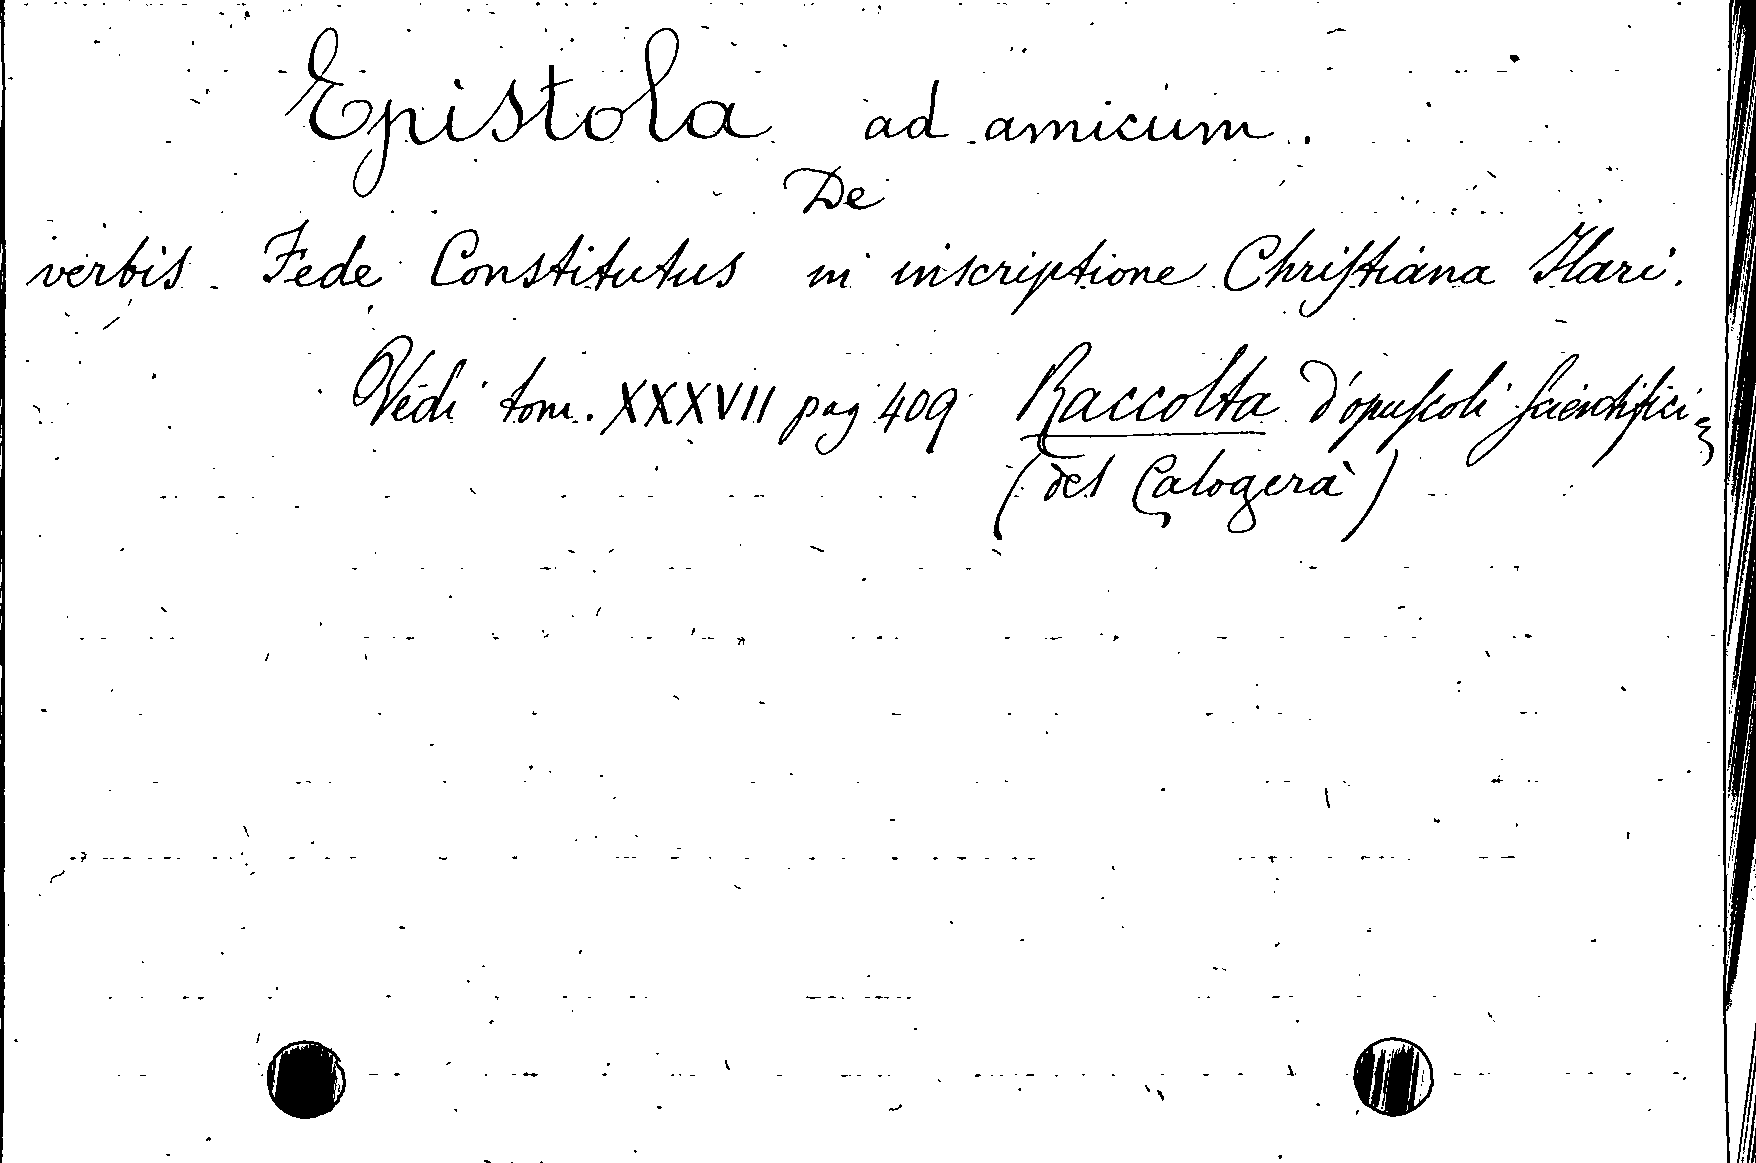 Epistola ad amicum.
De
verbis Fede Constitutus in inscriptione Chriſtiana Ilari.
Vedi tom. XXXVII pag 409 Raccolta d'opuſcoli ſcientifici=
(del Calogerà)